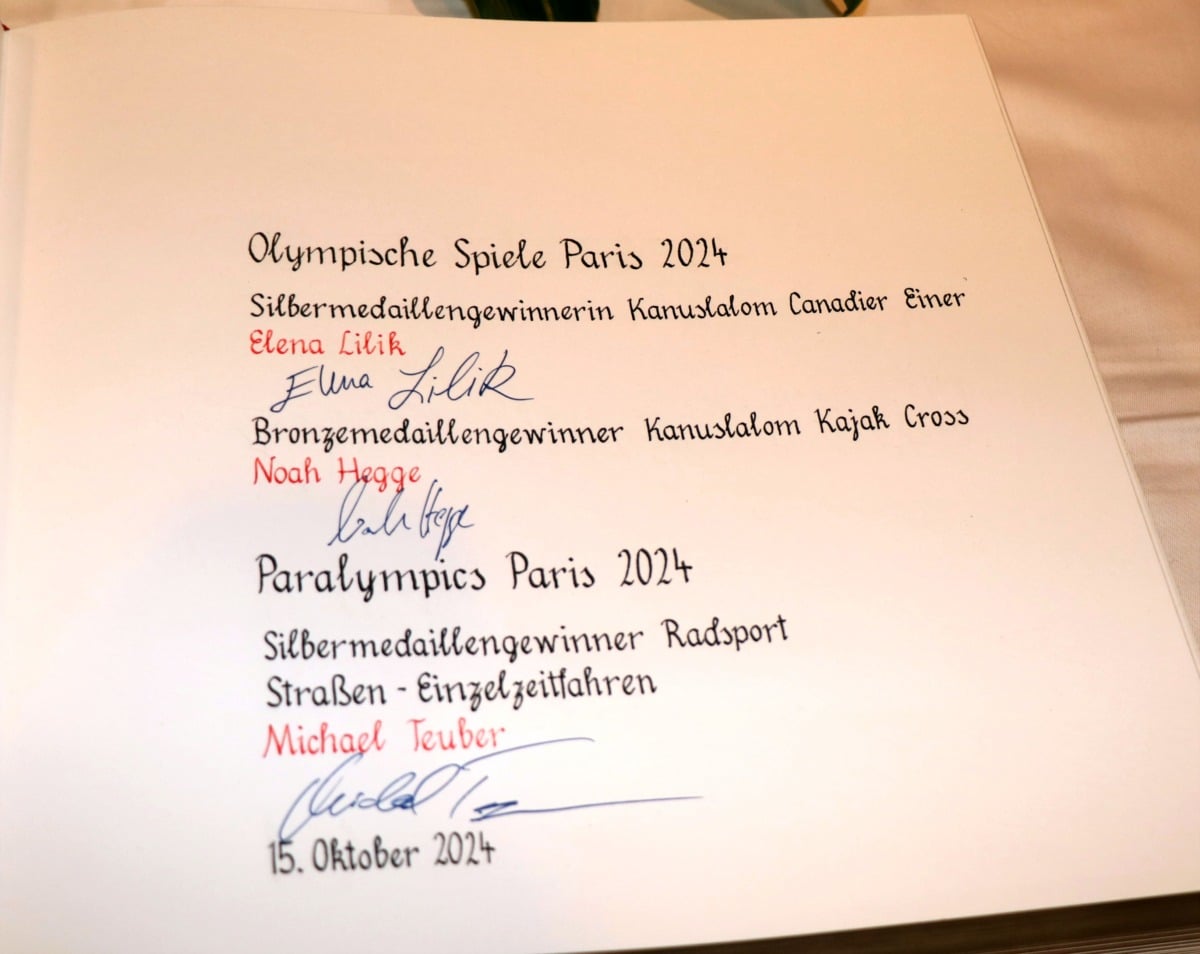 Olympische Spiele Paris 2024
Silbermedaillengewinnerin Kanuslalom Canadier Einer
Elena Lilik
Elena Lilik
Bronzemedaillengewinner Kanuslalom Kajak Cross
Noah Hegge
Noah Hegge
Paralympics Paris 2024
Silbermedaillengewinner Radsport
Straßen - Einzelzeitfahren
Michael Teuber
Michael
15. Oktober 2024